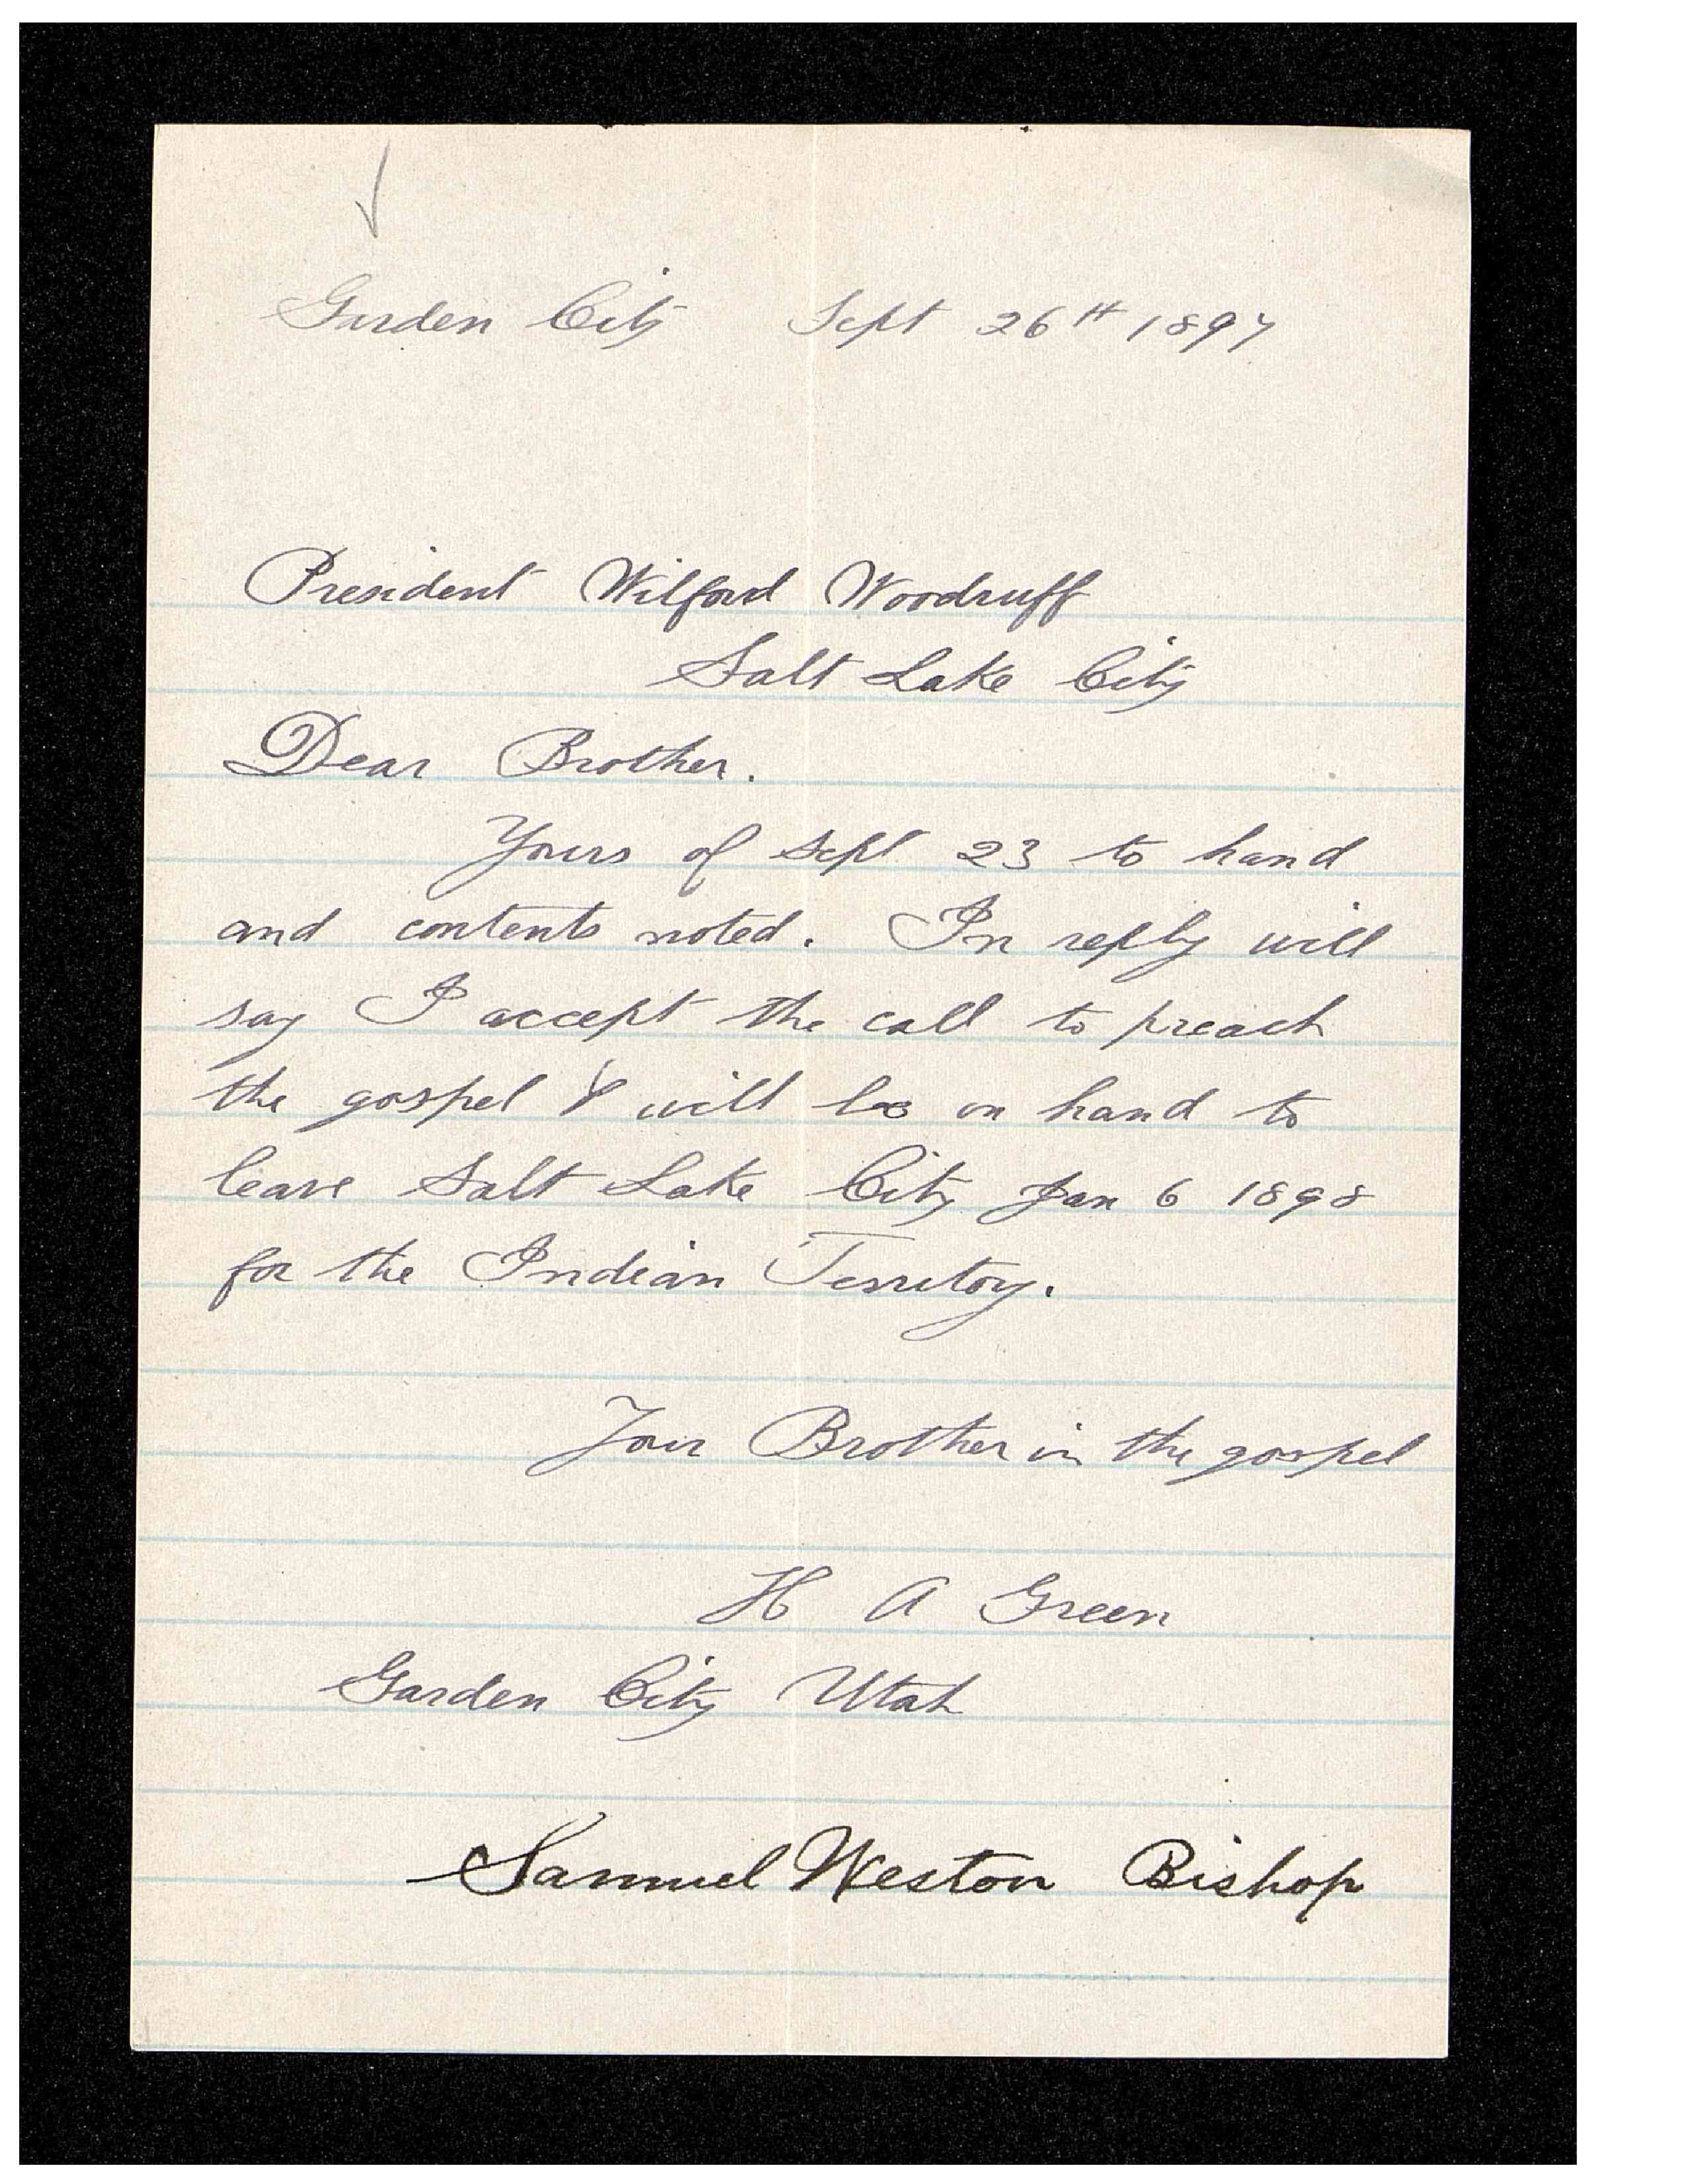 Garden City Sept 26th 1897
President Wilford Woodruff
Salt Lake City
Dear Brother.
Yours of Sept 23 to hand
and contents noted. In reply will
say I accept the call to preach
the gospel & will be on hand to
leave Salt Lake City Jan 6 1898
for the Indian Territoy.
Your Brother in the gospel
H A Green
Garden City Utah
Samuel Weston Bishop